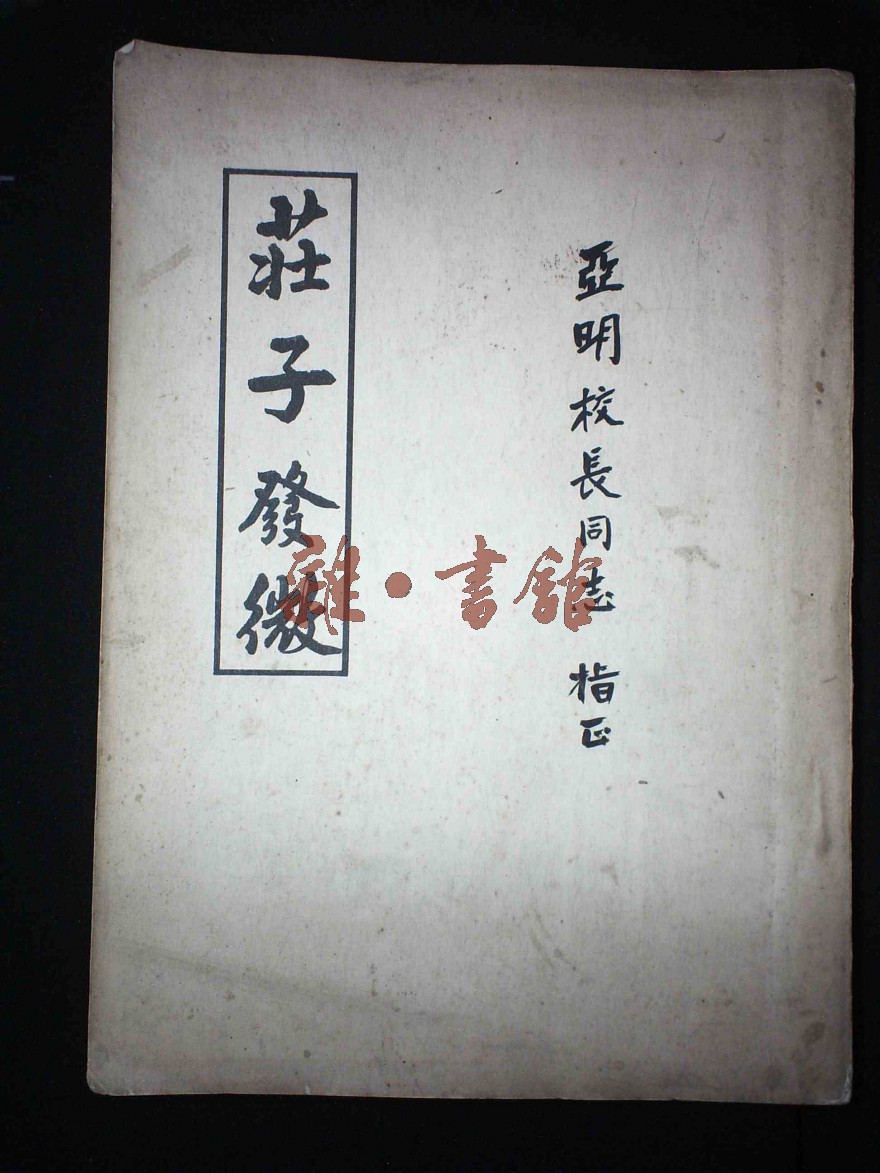 亞明校長同志 指正
莊子發微
雜·書館